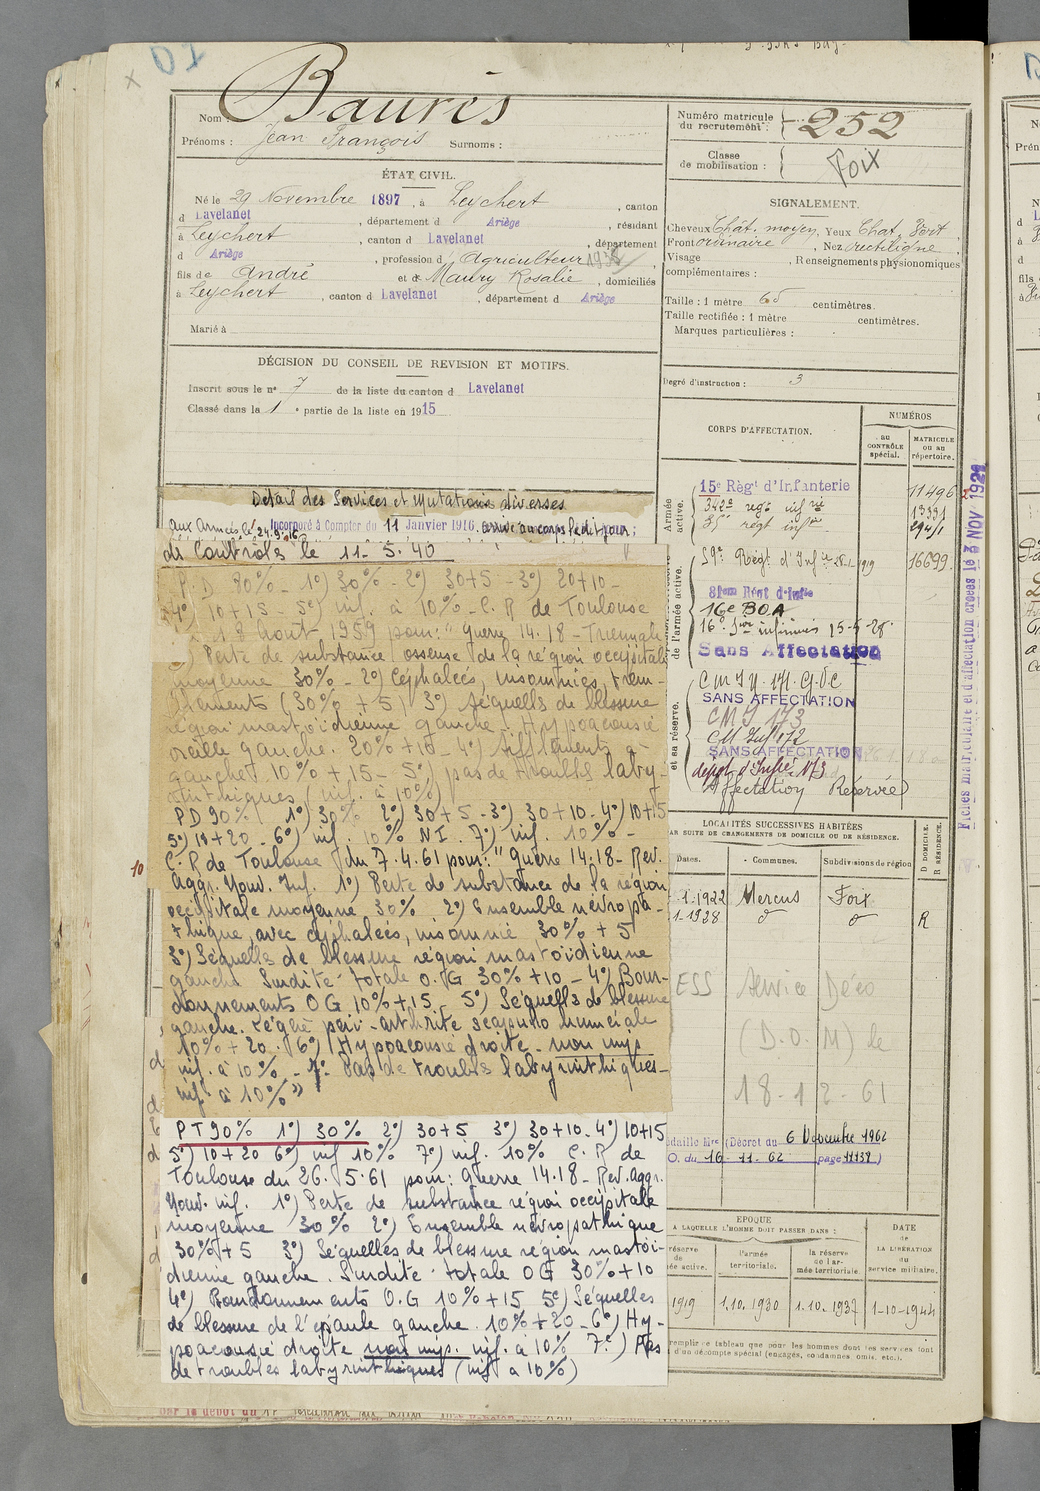 Nom : Baurès
Prénoms : Jean François Surnoms :
ÉTAT CIVIL.
Né le 29 Novembre 1897, à Leychert, canton
d Lavelanet, département d Ariège, résidant
à Leychert, canton d Lavelanet, département
d Ariège, profession d'agriculteur
fils de André et de Maury Rosalie, domiciliés
à Leychert, canton d Lavelanet, département d Ariège
Marié à
DÉCISION DU CONSEIL DE REVISION ET MOTIFS.
Inscrit sous le n° 7 de la liste du canton d Lavelanet
Classé dans la 1e partie de la liste en 1915
Détail des Services et Mutations diverses
aux Armées le 24.9.16 Incorporé à Compter du 11 Janvier 1916. arrivé au corps le dit jour ;
des Contrôles le 11-5.40
P.D 80% - 1°) 30% - 2°) 30+5 - 3°) 20+10 -
4°) 10+15 - 5°) inf. à 10% - C. R de Toulouse
18 Août 1959 pour : "Guerre 14.18 -
Perte de substance osseuse de la région occipitale
moyenne 30% - 2°) Céphalées, insomnies, trem-
blements (30% + 5) 3°) Séquelles de blessure
région mastoïdienne gauche. Hypoacousie
oreille gauche. 20% + 10 - 4°) Sifflements à
gauche 10% + 15 - 5°) pas de troubles laby-
rinthiques (inf. à 10%)
PD 90% 1°) 30% 2°) 30+5 - 3°) 30+10 - 4°) 10+15
5°) 10+20 - 6°) inf. 10% N I. 7°) inf. 10% -
C. R de Toulouse du 7.4.61 pour : "Guerre 14.18 - Rev.
Aggr. Nouv. Inf. 1°) Perte de substance de la région
occipitale moyenne 30% 2°) Ensemble névropa-
thique avec céphalées, insomnie 30% + 5
3°) Séquelles de blessure région mastoïdienne
gauche Surdité totale O.G 30% +10 - 4°) Bour-
donnements OG 10% +15 - 5°) Séquelles de blessure
gauche. Légère péri-arthrite scapulo humérale
10% + 20. 6°) Hypoacousie droite non imp
inf. à 10% - 7° Pas de troubles labyrinthiques -
inf. à 10%"
PT 90% 1°) 30% 2°) 30+5 3°) 30+10 - 4°) 10+15
5°) 10+20 6°) inf 10% 7°) inf. 10% C. R de
Toulouse du 26.5.61 pour : Guerre 14.18 - Rev. Aggr.
Nouv. inf. 1°) Perte de substance région occipitale
moyenne 30% 2°) Ensemble névropathique
30% + 5 3°) Séquelles de blessure région mastoï-
dienne gauche. Surdité totale OG 30% +10
4°) Bourdonnements O.G 10% +15 5°) Séquelles
de blessure de l'épaule gauche 10% +20 - 6°) Hy-
poacousie droite non imp. inf. à 10% 7°) Pas
de troubles labyrinthiques (inf à 10%)
Numéro matricule du recrutement : 252
Classe de mobilisation : Foix
SIGNALEMENT.
Cheveux Chât. moyen, Yeux Chat.
Front ordinaire, Nez rectiligne
Visage , Renseignements physionomiques
complémentaires :
Taille : 1 mètre 65 centimètres.
Taille rectifiée : 1 mètre centimètres.
Marques particulières :
Degré d'instruction : 3
CORPS D'AFFECTATION.
NUMÉROS
au CONTRÔLE spécial.
MATRICULE ou au répertoire.
Armée active.
15e Régt d'Infanterie 11496
342e rég. inf rie 13391
35e régt infrie
de l'armée active.
59e Régt d'Infie 28-1-1919 16699
81eme Régt d'Infie
16e BOA
16e Son infirmiers 15-5-28
Sans Affectation
et sa réserve.
C M I N. 171. G.V.C
SANS AFFECTATION
CMI 173
CM Inf 172
SANS AFFECTATION
dépôt d'Infie N 173
Affectation Réservée
Fiches matricule et d'affectation créées le 3 NOV 1921
LOCALITÉS SUCCESSIVES HABITÉES
PAR SUITE DE CHANGEMENTS DE DOMICILE OU DE RÉSIDENCE.
Dates. Communes. Subdivisions de région D DOMICILE. R RÉSIDENCE.
1-1922 Mercus Foix
1-1928 d° d° R
ESS Service Déco
(D.O.M) le
18-12-61
Médaille Mre (Décret du 6 Novembre 1962
J.O. du 16-11-62 page 11139)
EPOQUE
A LAQUELLE L'HOMME DOIT PASSER DANS :
réserve de l'armée active.
l'armée territoriale.
la réserve de l'armée territoriale.
DATE de LA LIBÉRATION du service militaire.
1919 1.10.1930 1.10.1937 1-10-1944
remplir ce tableau que pour les hommes dont les services font
d'un décompte spécial (engagés, condamnés, omis, etc.).